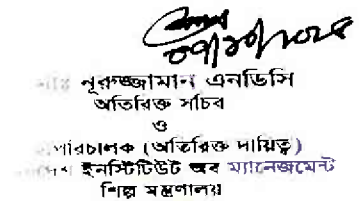 ০৭/১০/২০২৪
নূরুজ্জামান এনডিসি
অতিরিক্ত সচিব
ও
পরিচালক (অতিরিক্ত দায়িত্ব)
ইনস্টিটিউট অব ম্যানেজমেন্ট
শিল্প মন্ত্রণালয়